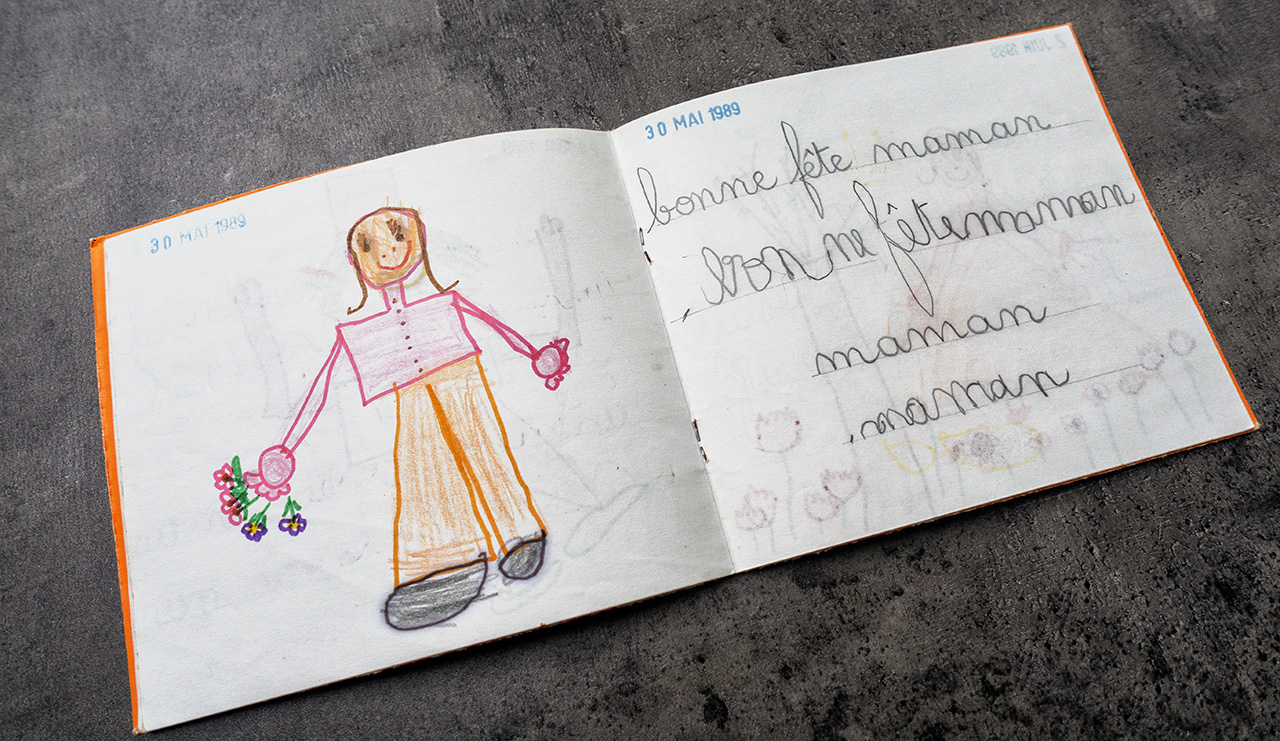 30 MAI 1989
30 MAI 1989
2 JUIN 1989
bonne fête maman
bonne fête maman
maman
maman